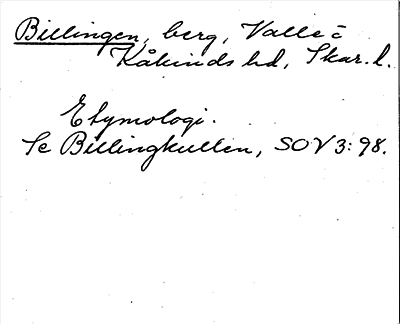 Billingen, berg, Valle o
Kåkinds hd, Skar. l.
Etymologi.
Se Billingkullen, SOV 3: 98.